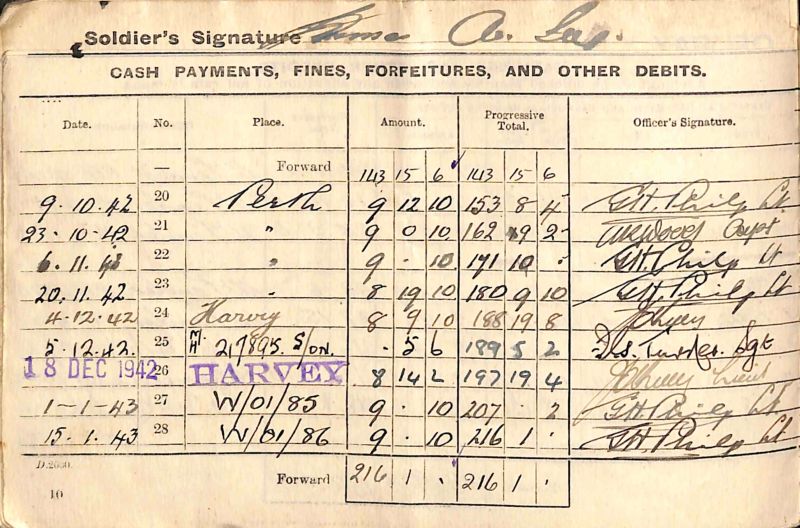 Soldier's Signature A.
CASH PAYMENTS, FINES, FORFEITURES, AND OTHER DEBITS.
Date. No. Place. Amount. Progressive Total. Officer's Signature.
— Forward 143 15 6 143 15 6
9.10.42 20 Perth 9 12 10 153 8 4 G.H. Philp Lt
23.10.42 21 " 9 0 10 162 9 2 Capt
6.11.42 22 " 9 . 10 171 10 . G.H. Philp Lt
20.11.42 23 " 8 19 10 180 9 10 G.H. Philp Lt
4.12.42 24 Harvey 8 9 10 188 19 8
5.12.42. 25 217895 S/on. . 5 6 189 5 2 Sgt
18 DEC 1942 26 HARVEY 8 14 2 197 19 4 Lieut
1-1-43 27 W/01/85 9 . 10 207 . 2 G.H. Philp Lt
15.1.43 28 W/01/86 9 . 10 216 1 . G.H. Philp Lt
D.2030.
10 Forward 216 1 . 216 1 .